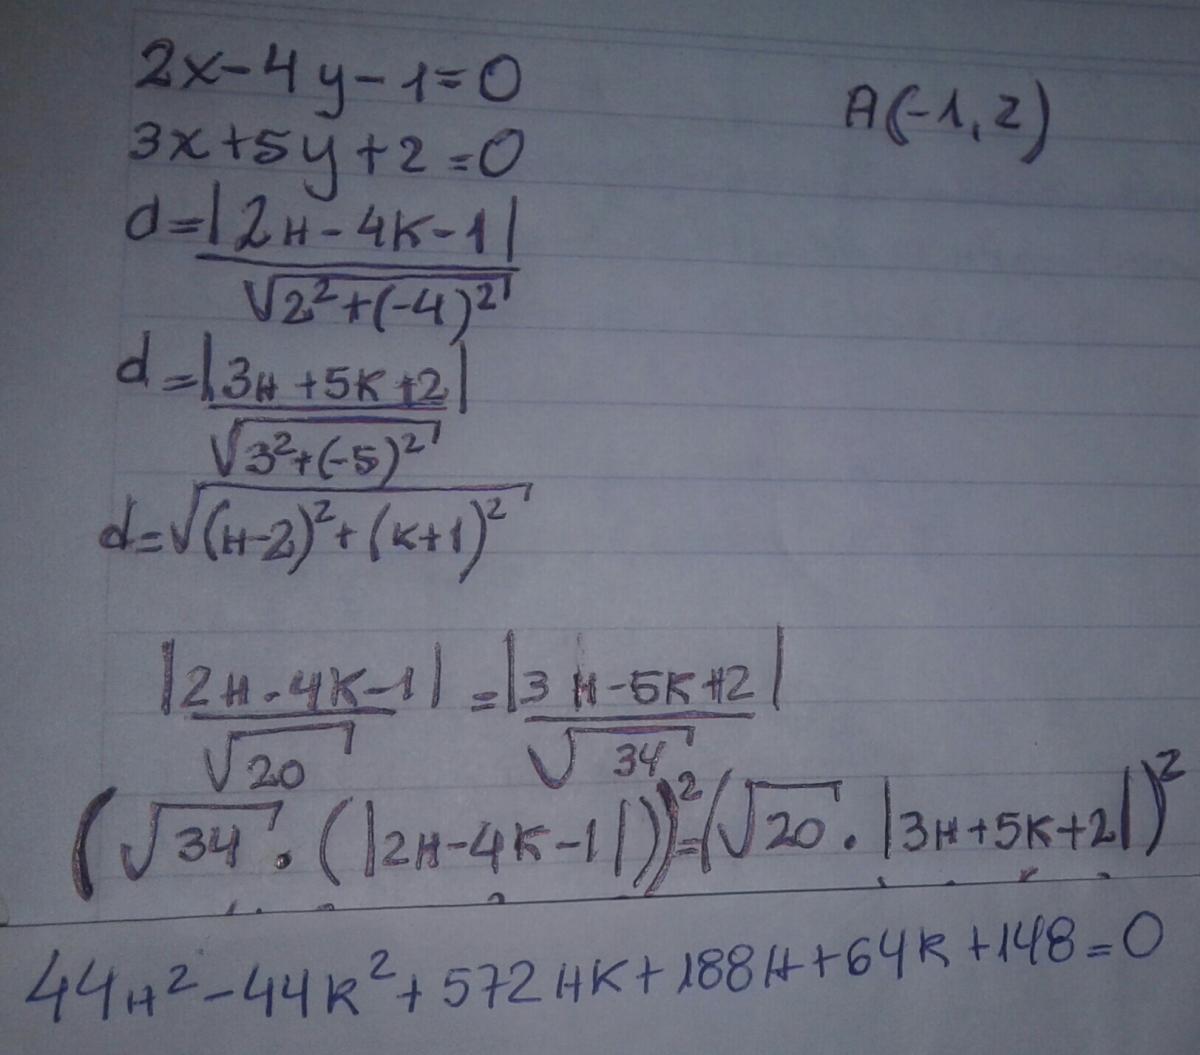 2x-4y-1=0
A(-1,2)
3x+5y+2=0
d=|2H-4K-1|
√2²+(-4)²
d=|3H+5K+2|
√3²+(-5)²
d=√(H-2)²+(K+1)²
|2H-4K-1| = |3H-5K+2|
√20 √34
(√34 . (|2H-4K-1|))²=(√20 . |3H+5K+2|)²
44H²-44K²+572HK+188H+64K+148=0